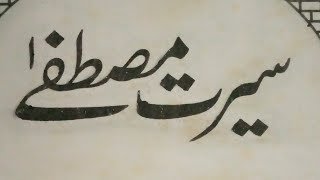 سیرت مصطفےٰ